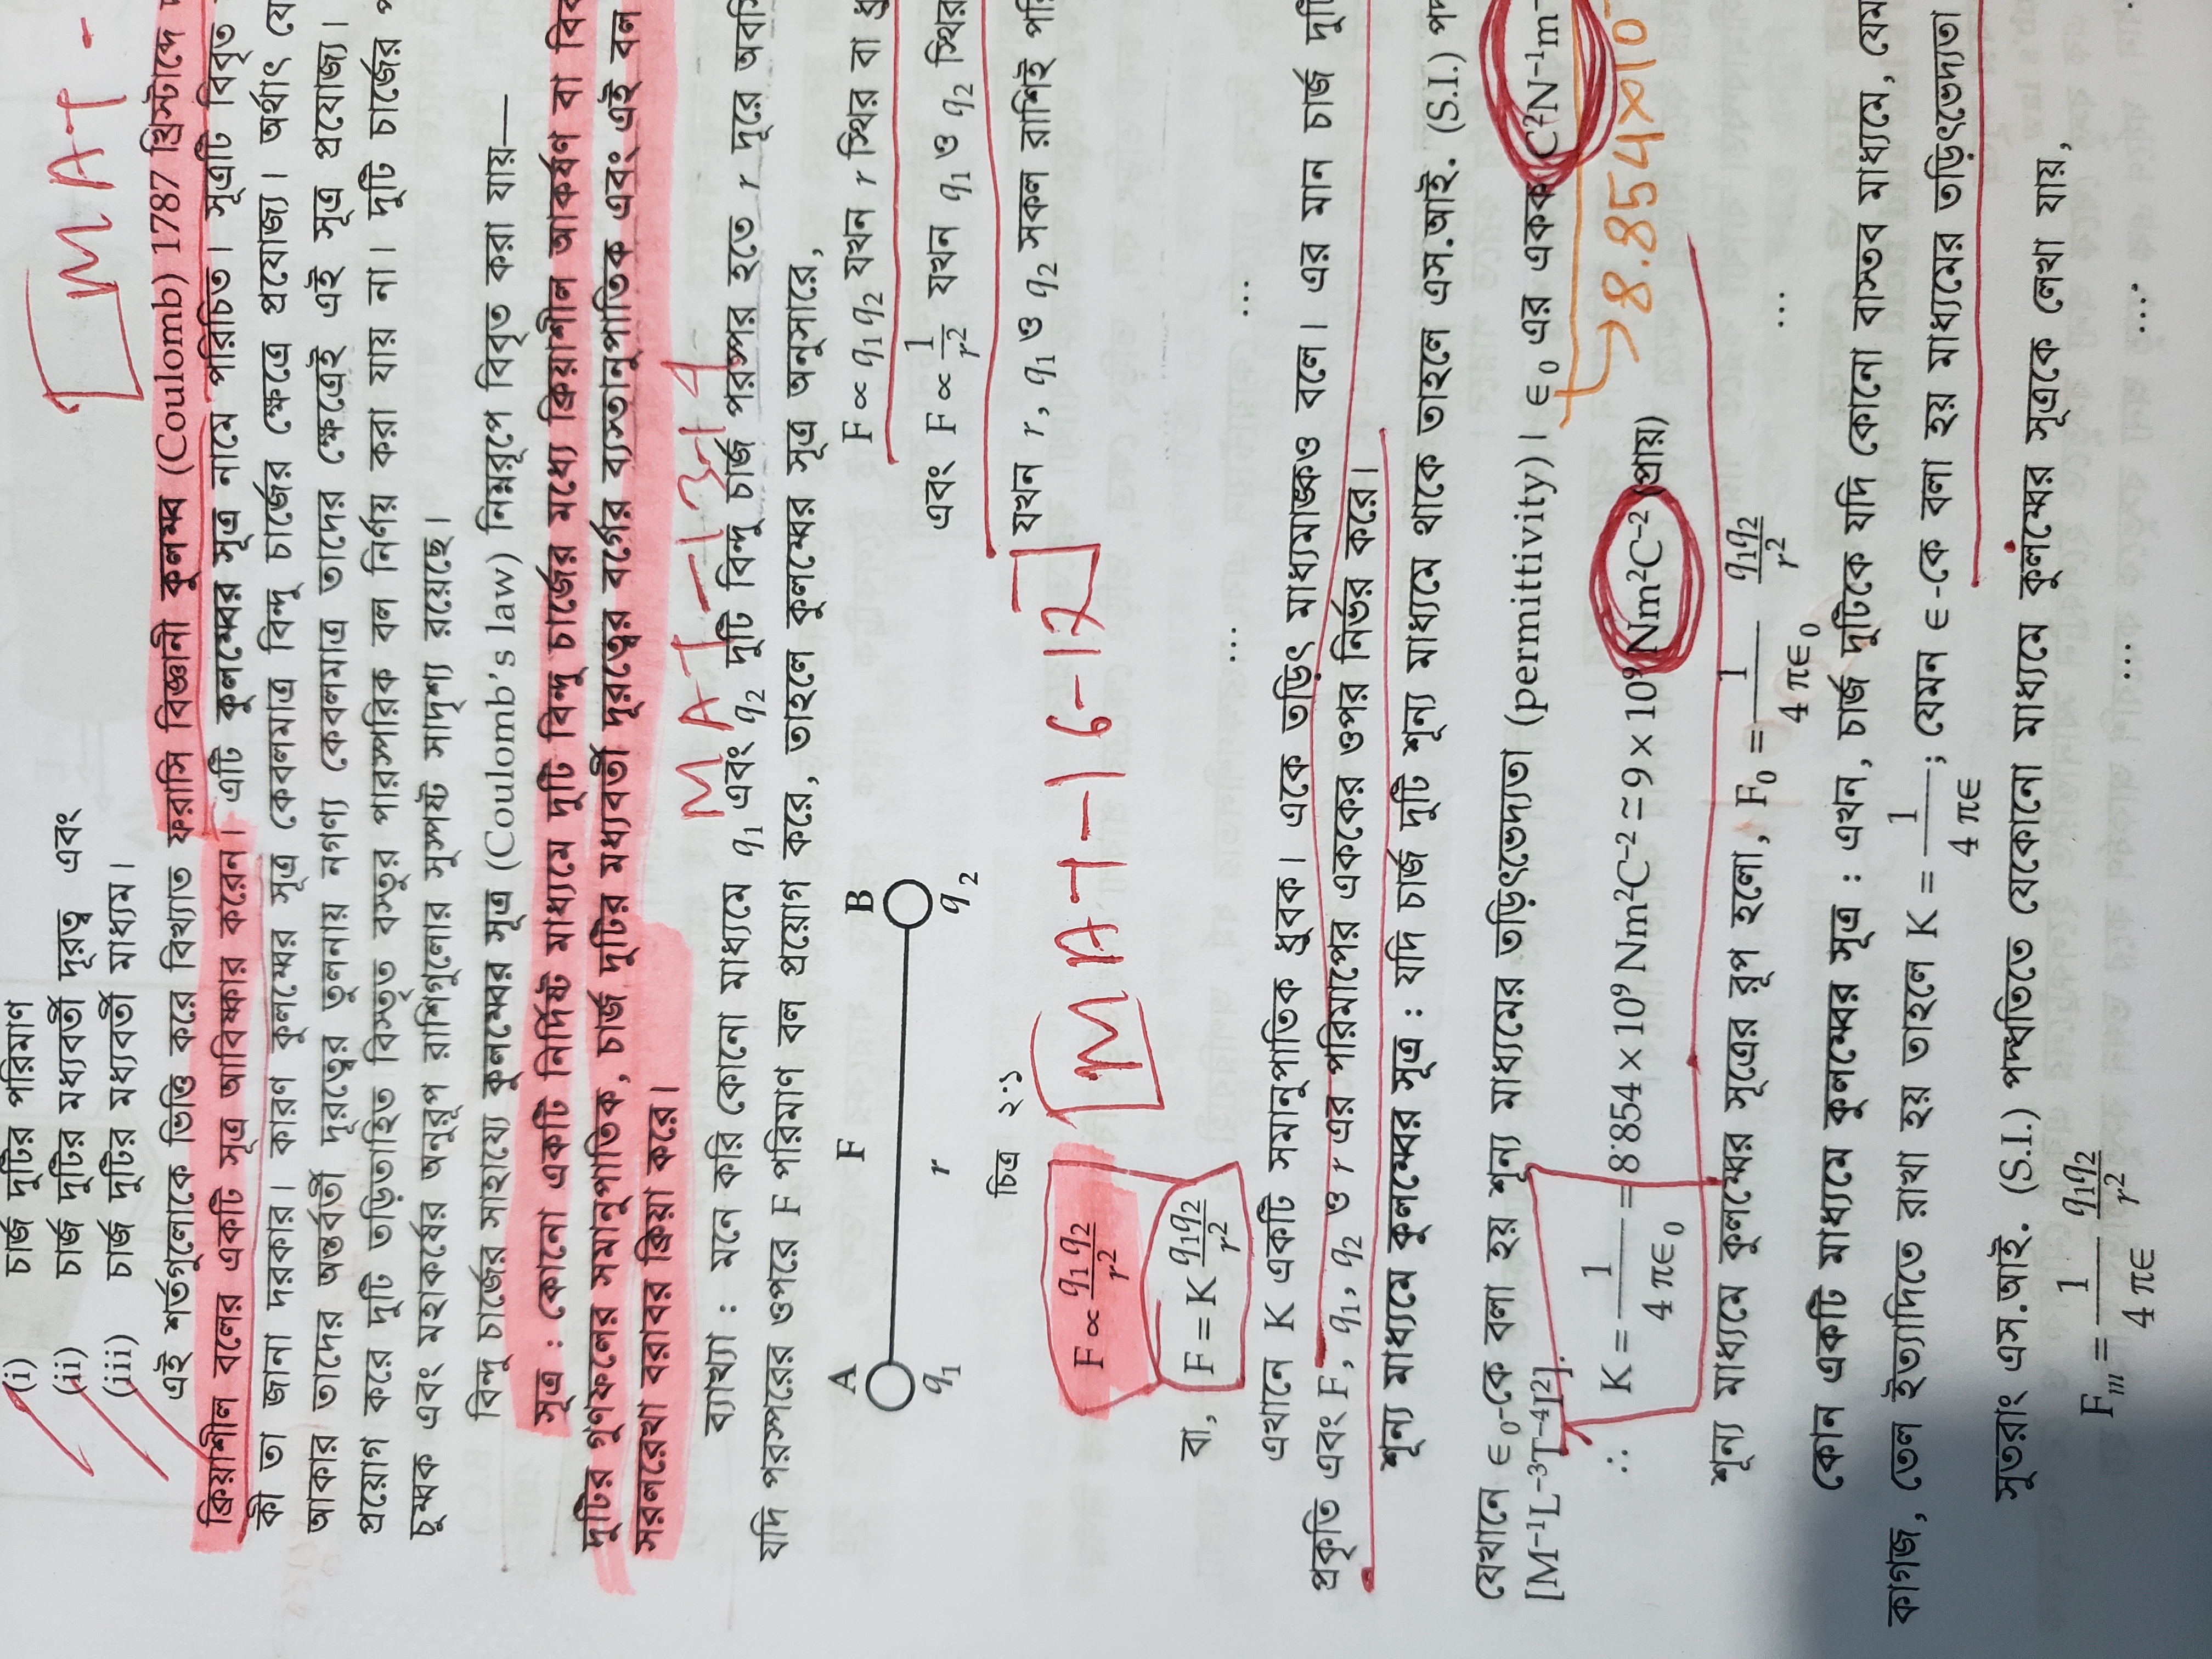 (i) চার্জ দুটির পরিমাণ
(ii) চার্জ দুটির মধ্যবর্তী দূরত্ব এবং
(iii) চার্জ দুটির মধ্যবর্তী মাধ্যম।
MAT -
এই শর্তগুলোকে ভিত্তি করে বিখ্যাত ফরাসি বিজ্ঞানী কুলম্ব (Coulomb) 1787 খ্রিস্টাব্দে
ক্রিয়াশীল বলের একটি সূত্র আবিষ্কার করেন। এটি কুলম্বের সূত্র নামে পরিচিত। সূত্রটি বিবৃত
কী তা জানা দরকার। কারণ কুলম্বের সূত্র কেবলমাত্র বিন্দু চার্জের ক্ষেত্রে প্রযোজ্য। অর্থাৎ যে
আকার তাদের অন্তর্বর্তী দূরত্বের তুলনায় নগণ্য কেবলমাত্র তাদের ক্ষেত্রেই এই সূত্র প্রযোজ্য।
প্রয়োগ করে দুটি তড়িতাহিত বিস্তৃত বস্তুর পারস্পরিক বল নির্ণয় করা যায় না। দুটি চার্জের
চুম্বক এবং মহাকর্ষের অনুরূপ রাশিগুলোর সুস্পষ্ট সাদৃশ্য রয়েছে।
বিন্দু চার্জের সাহায্যে কুলম্বের সূত্র (Coulomb's law) নিম্নরূপে বিবৃত করা যায়—
সূত্র : কোনো একটি নির্দিষ্ট মাধ্যমে দুটি বিন্দু চার্জের মধ্যে ক্রিয়াশীল আকর্ষণ বা বিক
দুটির গুণফলের সমানুপাতিক, চার্জ দুটির মধ্যবর্তী দূরত্বের বর্গের ব্যস্তানুপাতিক এবং এই বল
সরলরেখা বরাবর ক্রিয়া করে।
MAT-13-14
ব্যাখ্যা : মনে করি কোনো মাধ্যমে q₁ এবং q₂ দুটি বিন্দু চার্জ পরস্পর হতে r দূরে অবসি
যদি পরস্পরের ওপরে F পরিমাণ বল প্রয়োগ করে, তাহলে কুলম্বের সূত্র অনুসারে,
F ∝ q₁q₂ যখন r স্থির বা ধ্রু
A F B
q₁ r q₂
এবং F ∝ 1/r² যখন q₁ ও q₂ স্থির
চিত্র ২.১
F ∝ q₁q₂/r² MAT-16-17 যখন r, q₁ ও q₂ সকল রাশিই পরি
বা, F = K q₁q₂/r² ... ...
এখানে K একটি সমানুপাতিক ধ্রুবক। একে তড়িৎ মাধ্যমাঙ্কও বলে। এর মান চার্জ দুটি
প্রকৃতি এবং F, q₁, q₂ ও r এর পরিমাপের এককের ওপর নির্ভর করে।
শূন্য মাধ্যমে কুলম্বের সূত্র : যদি চার্জ দুটি শূন্য মাধ্যমে থাকে তাহলে এস.আই. (S.I.) পদ
যেখানে ∈₀-কে বলা হয় শূন্য মাধ্যমের তড়িৎভেদ্যতা (permittivity)। ∈₀ এর একক C²N⁻¹m⁻
[M⁻¹L⁻³T⁴I²].
8.854×10⁻
∴ K = 1/4π∈₀ = 8.854 × 10⁹ Nm²C⁻² ≅ 9 × 10⁹ Nm²C⁻² (প্রায়)
শূন্য মাধ্যমে কুলম্বের সূত্রের রূপ হলো, F₀ = 1/4π∈₀ q₁q₂/r² ...
কোন একটি মাধ্যমে কুলম্বের সূত্র : এখন, চার্জ দুটিকে যদি কোনো বাস্তব মাধ্যমে, যেম
কাগজ, তেল ইত্যাদিতে রাখা হয় তাহলে K = 1/4π∈ ; যেমন ∈-কে বলা হয় মাধ্যমের তড়িৎভেদ্যতা
সুতরাং এস.আই. (S.I.) পদ্ধতিতে যেকোনো মাধ্যমে কুলম্বের সূত্রকে লেখা যায়,
Fₘ = 1/4π∈ q₁q₂/r² ... ...